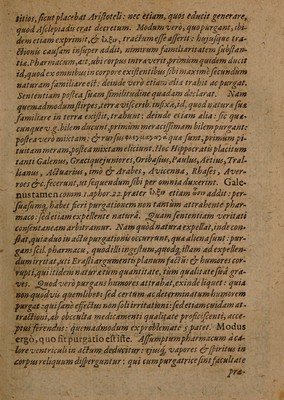 titios, sicut placebat Aristoteli: nec etiam, quot educit generare,
quod Asclepiadi erat decretum. Modum verò, quo purgant, ibi-
dem etiam exprimit, & tractum esse asserit: hujusque tra-
ctionis causam insuper addit, nimirum familiaritatem substan-
tiæ. Pharmacum, ait, ubi corpus intraverit, primum quidem ducit
id, quod ex omnibus in corpore existentibus sibi maximè secundum
naturam familiare est: deinde verò etiam alia trahit ac purgat.
Sententiam postea suam similitudine quadam declarat. Nam
quemadmodum stirpes, terræ visceribus infixæ, id, quod naturæ suæ
familiare in terra existit, trahunt: deinde etiam alia: sic quæ-
cunque v.g. bilem ducunt, primùm meracissimam bilem purgant:
postea verò mixtam; & rursus quæ sunt, primùm pi-
tuitam meram, postea mixtam eliciunt. Hoc Hippocratis placitum
tanti Galenus, Græcique juniores, Oribasius, Paulus, Aetius, Tral-
lianus, Actuarius, imò & Arabes, Avicenna, Rhases, Aver-
roes &c. fecerunt, ut sequendum sibi per omnia duxerint. Gale-
nus tamen comm: 1. aphor. 22. præter etiam addit: per-
suasum, habes fieri purgationem non tantùm attrahente phar-
maco: sed etiam expellente naturâ. Quam sententiam veritati
consentaneam arbitramur. Nam quòd natura expellat, inde con-
stat, quia duo in actu purgationis occurrunt, quæ aliena sunt: pur-
gans scil. pharmacum, quod est ingestum, quodq; illam ad expellen-
dum irritat, uti Erasti argumentis planum factum: & humores cor-
rupti, qui itidem naturæ tum quantitate, tùm qualitate sunt gra-
ves. Quod verò purgans humores attrahat, exinde liquet: quia
non quodvis quemlibet: sed certum ac determinatum humorem
purgat: qui sanè effectus non soli irritationi: sed etiam cuidam at-
tractioni, ab occulta medicamenti qualitate proficiscenti, acce-
ptus ferendus: quemadmodum ex problemate 5. patet. Modus
ergò, quo fit purgatio est iste. Assumptum pharmacum à ca-
lore ventriculi in actum deducitur: ejusq; vapores & spiritus in
corpus reliquum disperguntur: qui cum purgatrice sint facultate
præ-